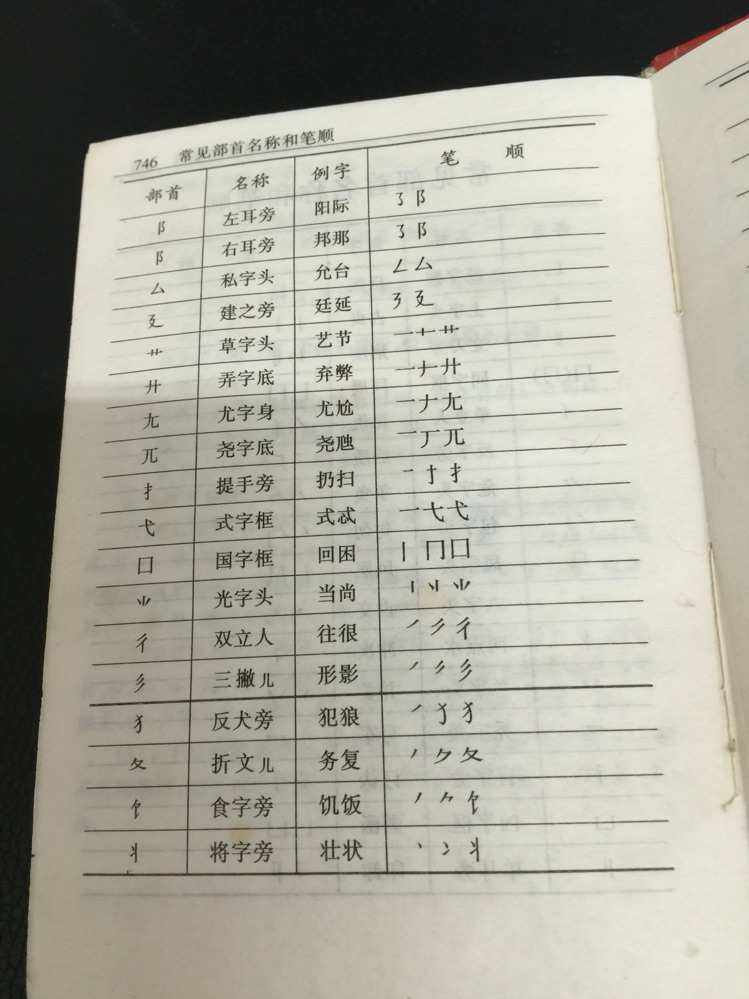 746 常见部首名称和笔顺
部首 名称 例字 笔顺
阝 左耳旁 阳际 ㇌阝
阝 右耳旁 邦那 ㇌阝
厶 私字头 允台 𠃋厶
廴 建之旁 廷延 ㇋廴
艹 草字头 艺节 一十艹
廾 弄字底 弃弊 一ナ廾
尢 尤字身 尤尬 一ナ尢
兀 尧字底 尧虺 一丆兀
扌 提手旁 扔扫 一扌扌
弋 式字框 式忒 一七弋
囗 国字框 回困 丨冂囗
⺌ 光字头 当尚 丨⺌
彳 双立人 往很 丿彳
彡 三撇儿 形影 丿彡
犭 反犬旁 犯狼 丿犭
夂 折文儿 务复 丿ク夂
饣 食字旁 饥饭 丿𠂊饣
丬 将字旁 壮状 丶冫丬